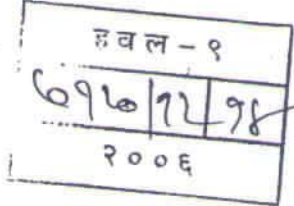 हवल - ९
७१७/१२/१४
२००६